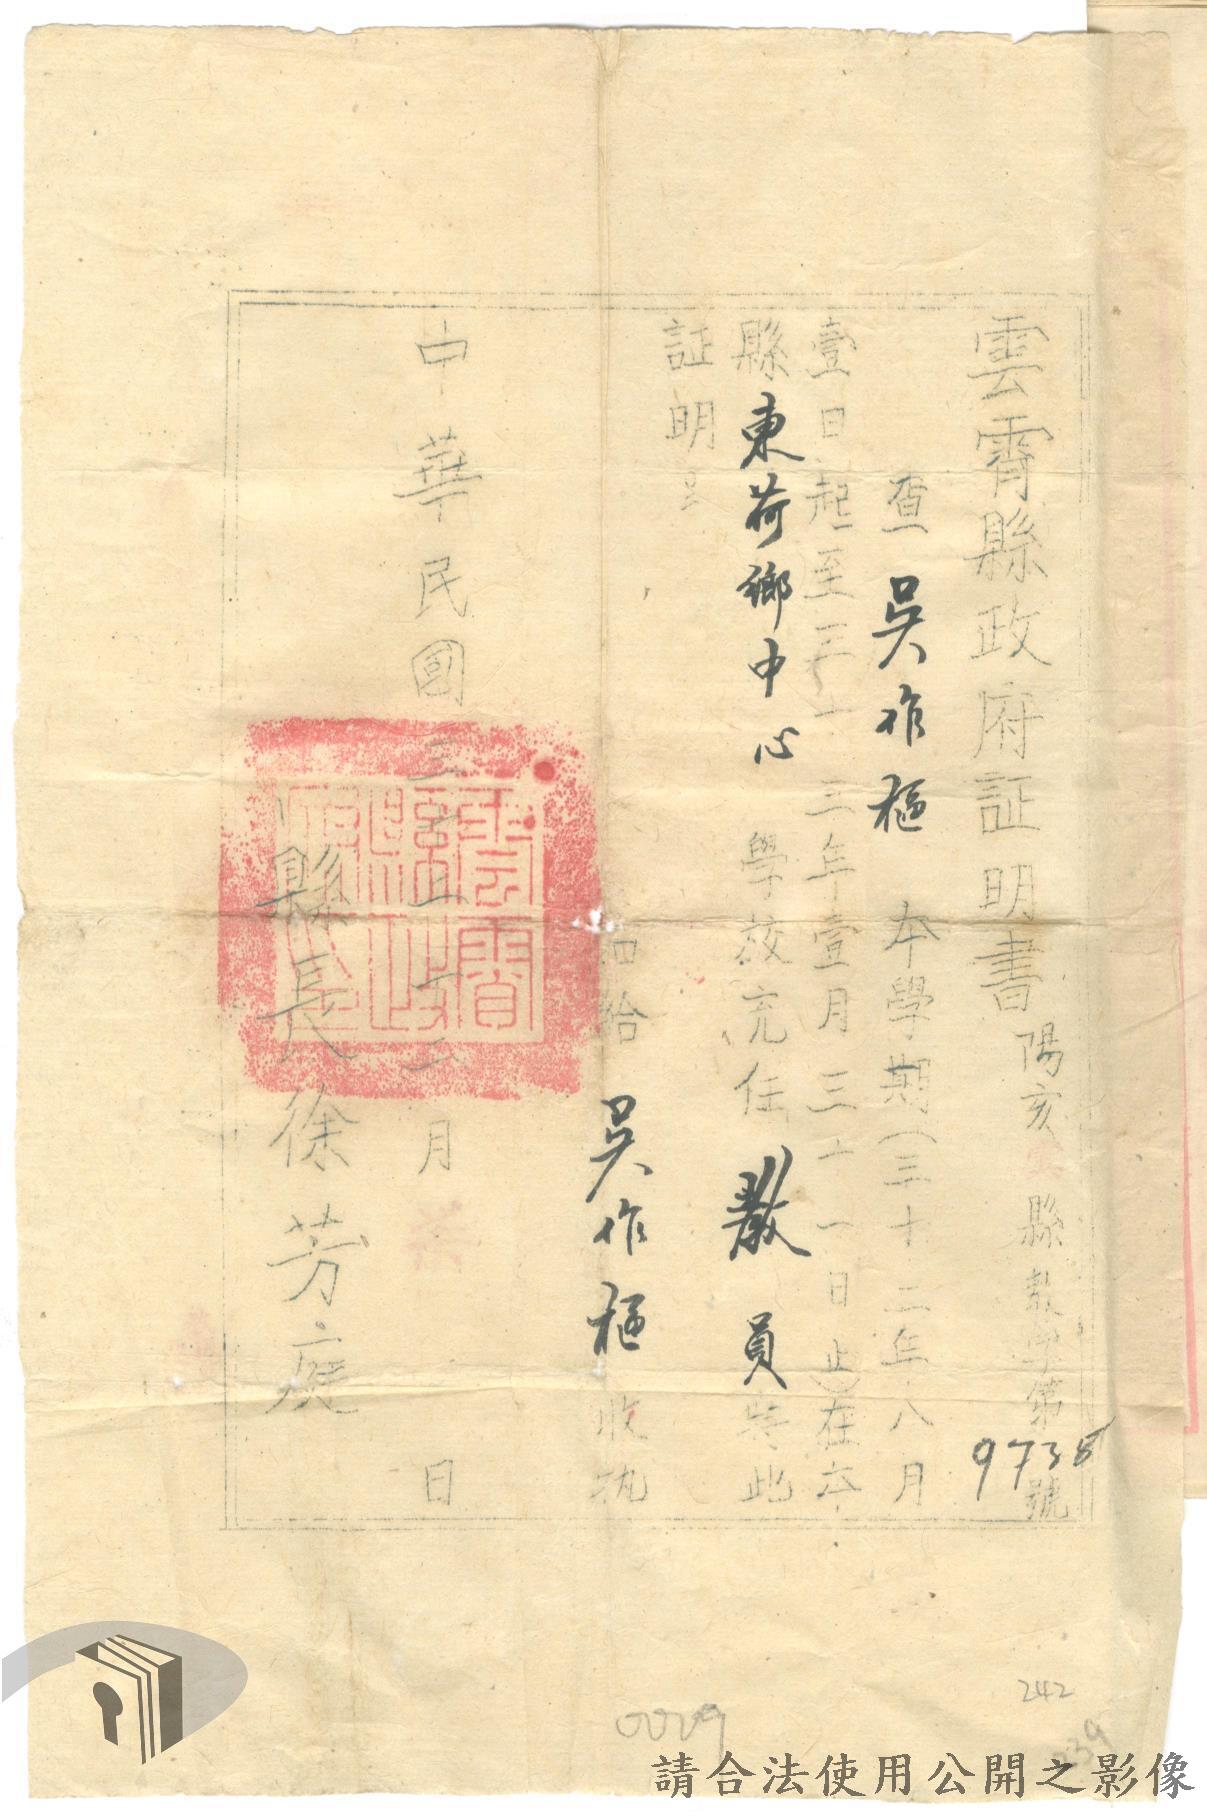 雲霄縣政府証明書
陽亥 縣教學第9738號
查 吳作樞 本學期(三十二年八月
壹日起至三十三年壹月三十一日止)在本
縣東荷鄉中心學校充任教員特此
証明
右給 吳作樞 收執
中華民國三十 二月 日
縣長徐芳庭
雲霄縣政
242
0029
239
請合法使用公開之影像